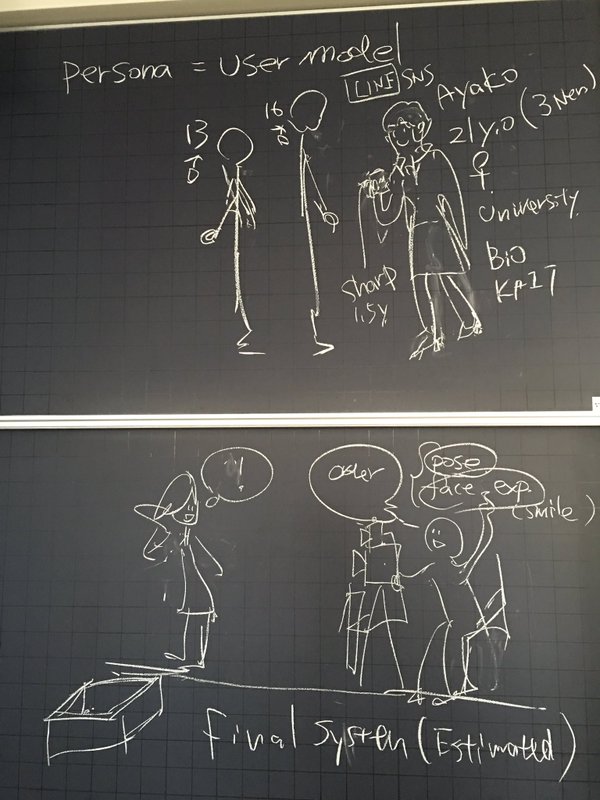 Persona = User model
LINE SNS
Ayako
21 y.o (3 Nen)
♀
University
Bio
KAIT
13
16
Sharp
1.5y
!
order
pose
face exp.
(smile)
Final System (Estimated)